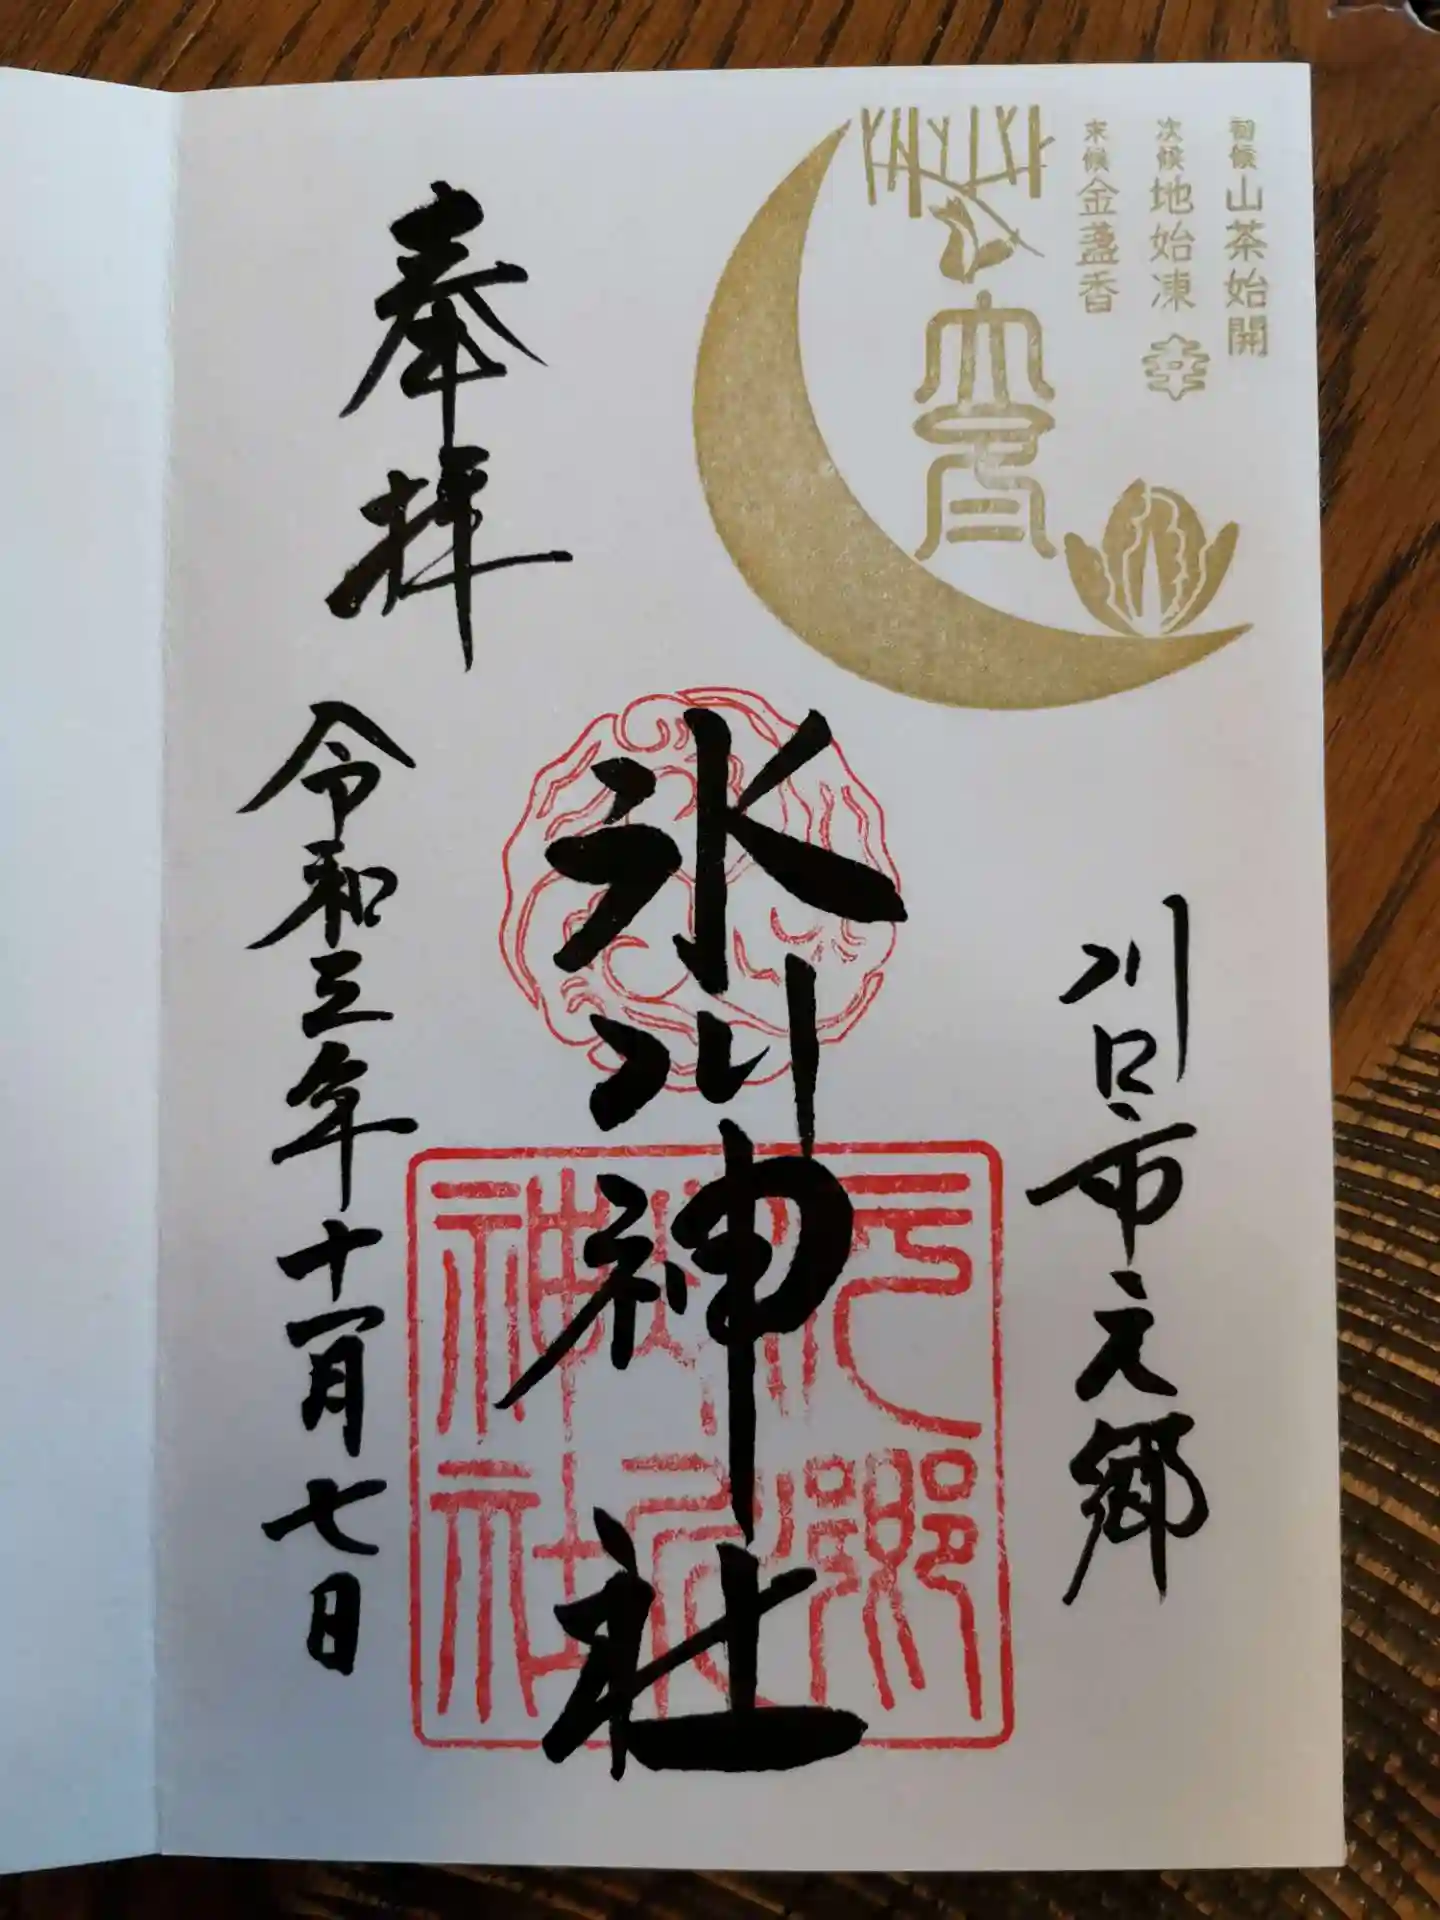 初候 山茶始開
次候 地始凍
末候 金盞香
幸
立冬
川口市元郷
氷川神社
元郷
氷川
神社
奉拝
令和三年十一月七日